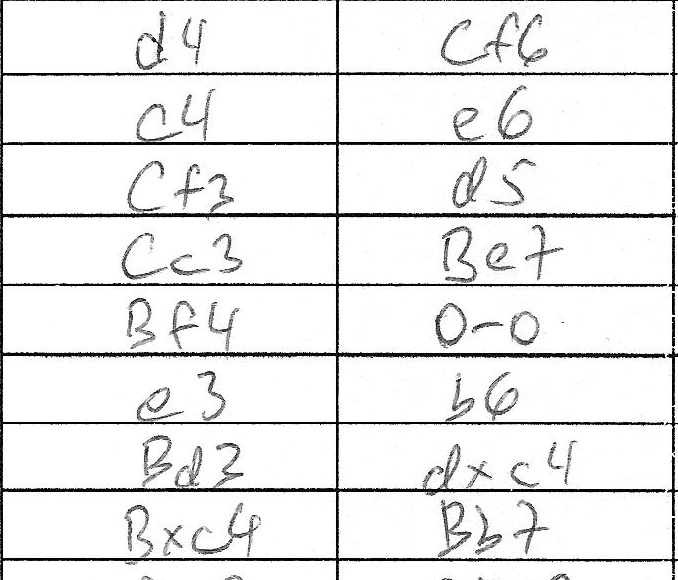 d4 Cf6
c4 e6
Cf3 d5
Cc3 Be7
Bf4 0-0
e3 b6
Bd3 dxc4
Bxc4 Bb7